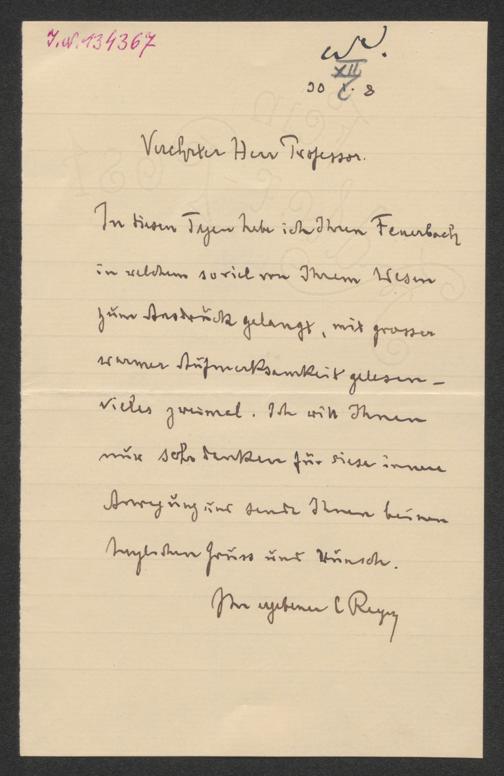 I.N. 134367
W.
XII
30 I. 8
Verehrter Herr Professor.
In diesen Tagen habe ich Ihren Feuerbach
in welchem soviel von Ihrem Wesen
zum Ausdruck gelangt, mit grosser
warmer Aufmerksamkeit gelesen –
vieles zweimal. Ich will Ihnen
nur sehr danken für diese innere
Anregung und sende Ihnen
herzlichen Gruss und Wunsch.
Ihr ergebener C